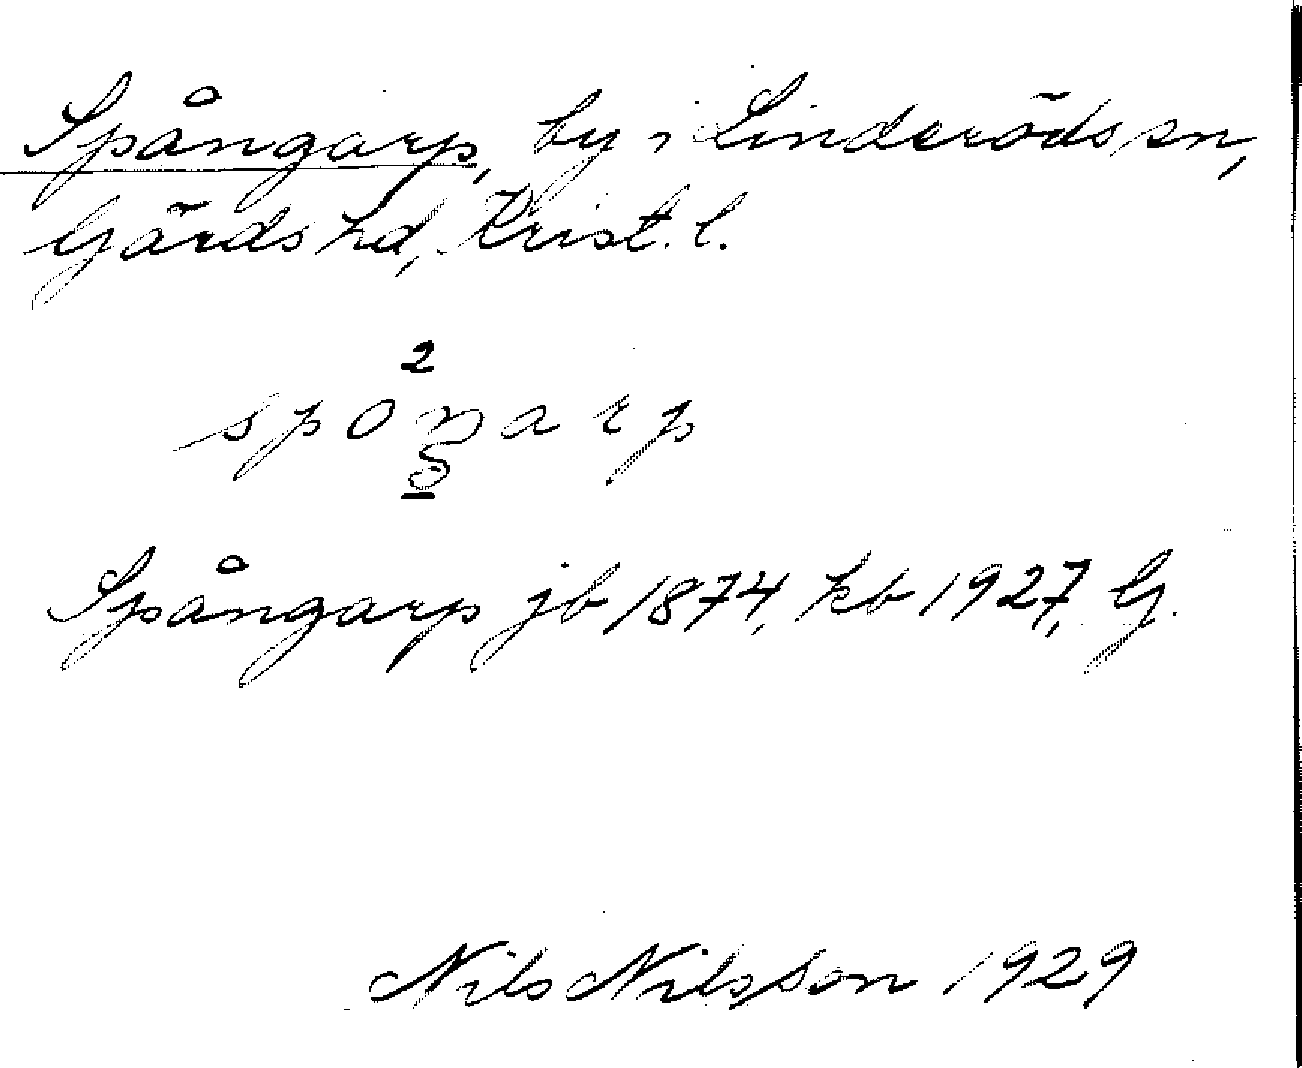 Spångarp, by i Linderöds sn,
Gärds hd, Krist. l.
2
spoŋarp
Spångarp jb 1874, kb 1927, G.
Nils Nilsson 1929